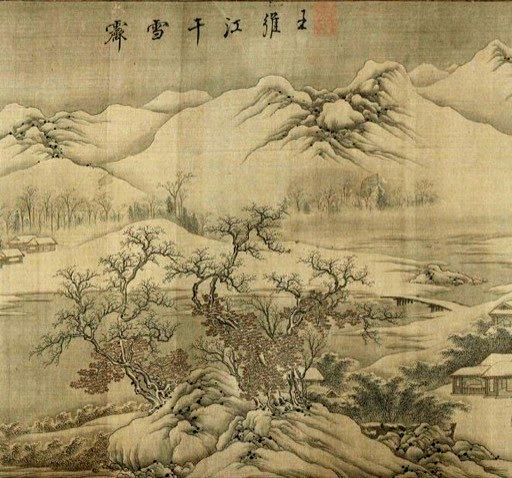 王維江干雪霽